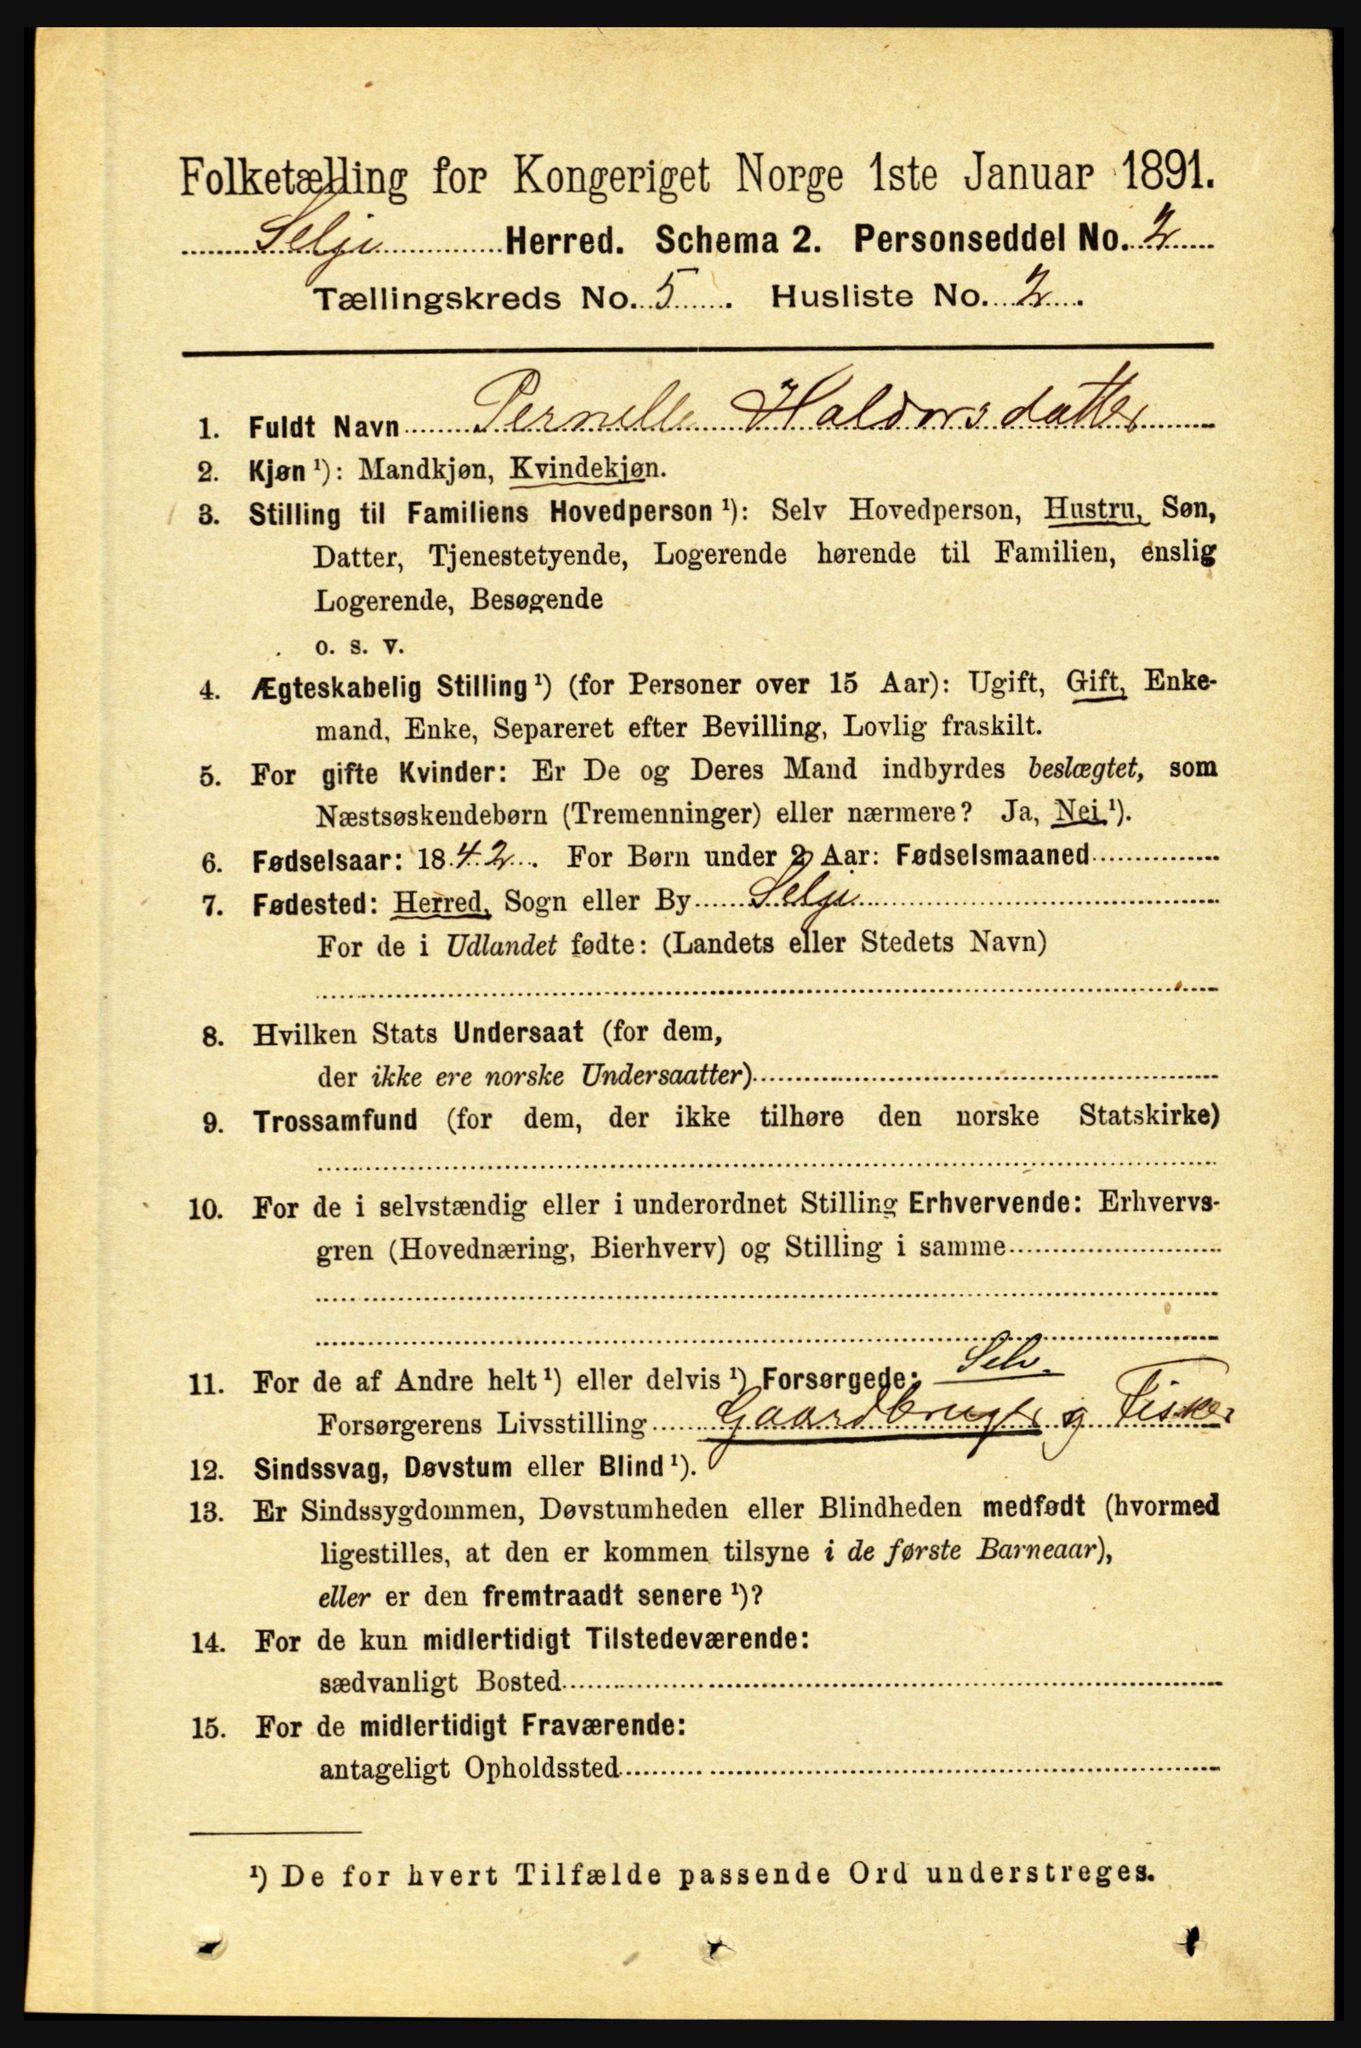 Folketælling for Kongeriget Norge 1ste Januar 1891.
Selje Herred. Schema 2. Personseddel No. 2
Tællingskreds No. 5. Husliste No. 2.
1. Fuldt Navn Pernelle Haldorsdatter
2. Kjøn ¹): Mandkjøn, Kvindekjøn.
3. Stilling til Familiens Hovedperson ¹): Selv Hovedperson, Hustru, Søn,
Datter, Tjenestetyende, Logerende hørende til Familien, enslig
Logerende, Besøgende
o. s. v.
4. Ægteskabelig Stilling ¹) (for Personer over 15 Aar): Ugift, Gift, Enke-
mand, Enke, Separeret efter Bevilling, Lovlig fraskilt.
5. For gifte Kvinder: Er De og Deres Mand indbyrdes beslægtet, som
Næstsøskendebørn (Tremenninger) eller nærmere? Ja, Nei ¹).
6. Fødselsaar: 1842. For Børn under 2 Aar: Fødselsmaaned
7. Fødested: Herred, Sogn eller By Selje
For de i Udlandet fødte: (Landets eller Stedets Navn)
8. Hvilken Stats Undersaat (for dem,
der ikke ere norske Undersaatter)
9. Trossamfund (for dem, der ikke tilhøre den norske Statskirke)
10. For de i selvstændig eller i underordnet Stilling Erhvervende: Erhvervs-
gren (Hovednæring, Bierhverv) og Stilling i samme
11. For de af Andre helt ¹) eller delvis ¹) Forsørgede: Selv.
Forsørgerens Livsstilling Gaardbruger og Fisker
12. Sindssvag, Døvstum eller Blind ¹).
13. Er Sindssygdommen, Døvstumheden eller Blindheden medfødt (hvormed
ligestilles, at den er kommen tilsyne i de første Barneaar),
eller er den fremtraadt senere ¹)?
14. For de kun midlertidigt Tilstedeværende:
sædvanligt Bosted
15. For de midlertidigt Fraværende:
antageligt Opholdssted
¹) De for hvert Tilfælde passende Ord understreges.